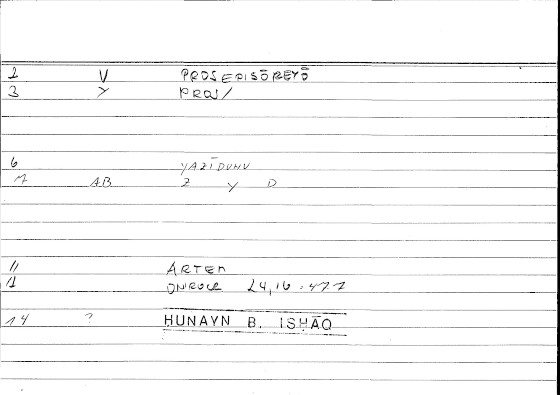 1 V PROSEPISŌREYŌ
3 Y PROS/
6 YAZĪDUHU
M AB Z Y D
11 ARTEM
11 ONIROCR 24,16 -
14 ? HUNAYN B. ISḤĀQ